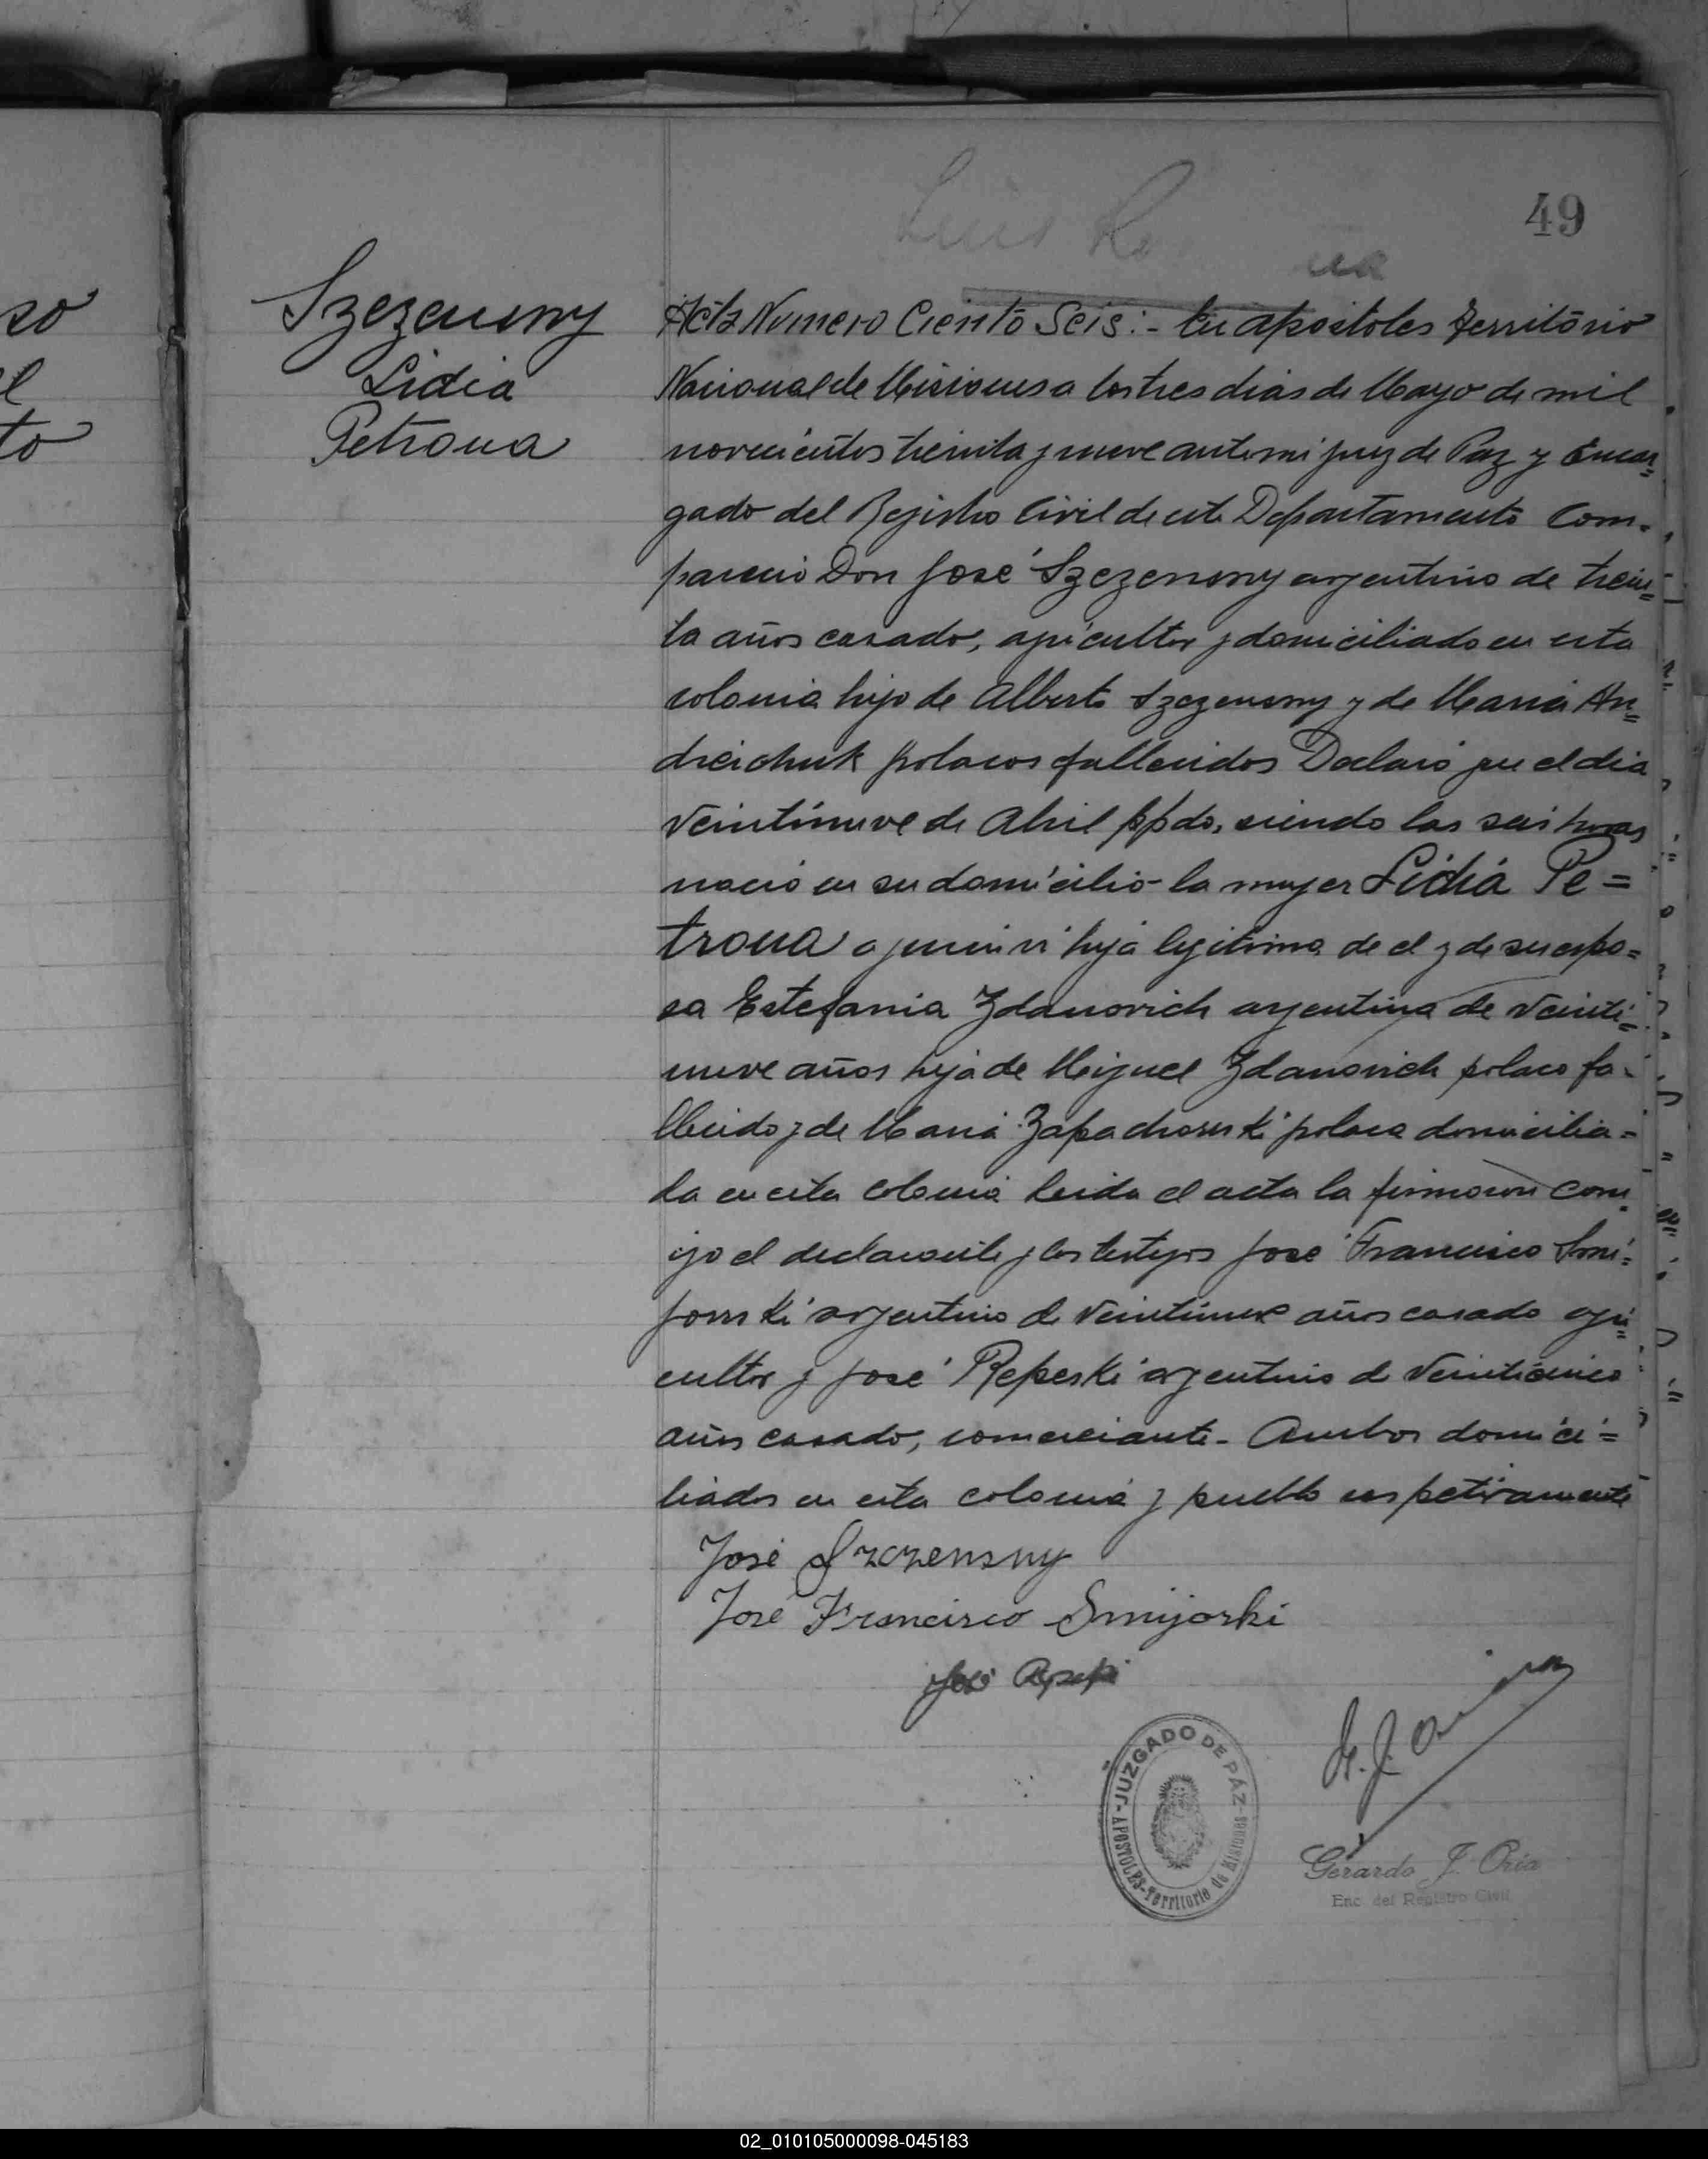 49
so
l
to
Szezensny
Lidia
Petrona
Acta Numero Ciento Seis:- En apostoles Territorio
Nacional de Misiones a los tres dias de Mayo de mil
novecientos treinta y nueve ante mi juez de Paz y Encar=
gado del Registro Civil de este Departamento Com-
parecio Don José Szezensny argentino de trein=
ta años casado, agricultor y domiciliado en esta
colonia hijo de Alberto Szezensny y de Maria An=
dreichuk polacos fallecidos Declaró que el dia
veintinueve de Abril ppdo, siendo las seis horas
nació en su domicilio la mujer Lidia Pe=
trona a quien vi hija legitima de el y de su espo=
sa Estefania Zdanovich argentina de veinti=
nueve años hija de Miguel Zdanovich polaco fa-
llecido y de Maria Zapachosuski polaca domicilia=
da en esta colonia leida el acta la firmaron con-
migo el declarante y los testigos José Francisco Smi=
jorski argentino de veintinueve años casado agri=
cultor y José Repeski argentino de veinticinco
años casado, comerciante- Ambos domici=
liados en esta colonia y pueblo respetivamente
José Szczensny
José Francisco Smijorski
José
JUZGADO DE PÁZ
APOSTOLES-Territorio de Misiones
Gerardo J. Oria
Enc. del Registro Civil
02_010105000098-045183